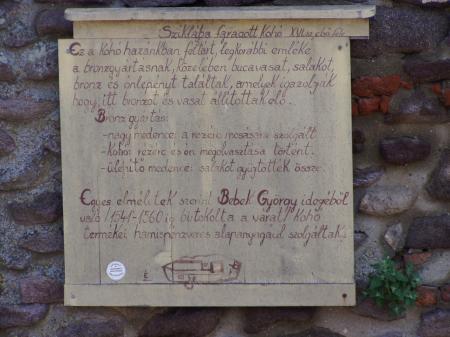 Sziklába faragott kohó XVI.sz. első fele
Ez a kohó hazánkban feltárt, legkorábbi emléke
a bronzgyártásnak, közelében bucavasat, salakot,
bronz és ónlepényt találtak, amelyek igazolják
hogy itt bronzot és vasat állítottak elő.
Bronz gyártás:
-nagy medence: a rézérc mosására szolgált
-kohó: rézérc és ón megolvasztása történt.
-ülepítő medence: salakot gyűjtötték össze.
Egyes elméletek szerint Bebek György idejéből
való 1541-1560 ig birtokolta a várat. kohó
termékei hamispénzverés alapanyagául szolgáltak.
É